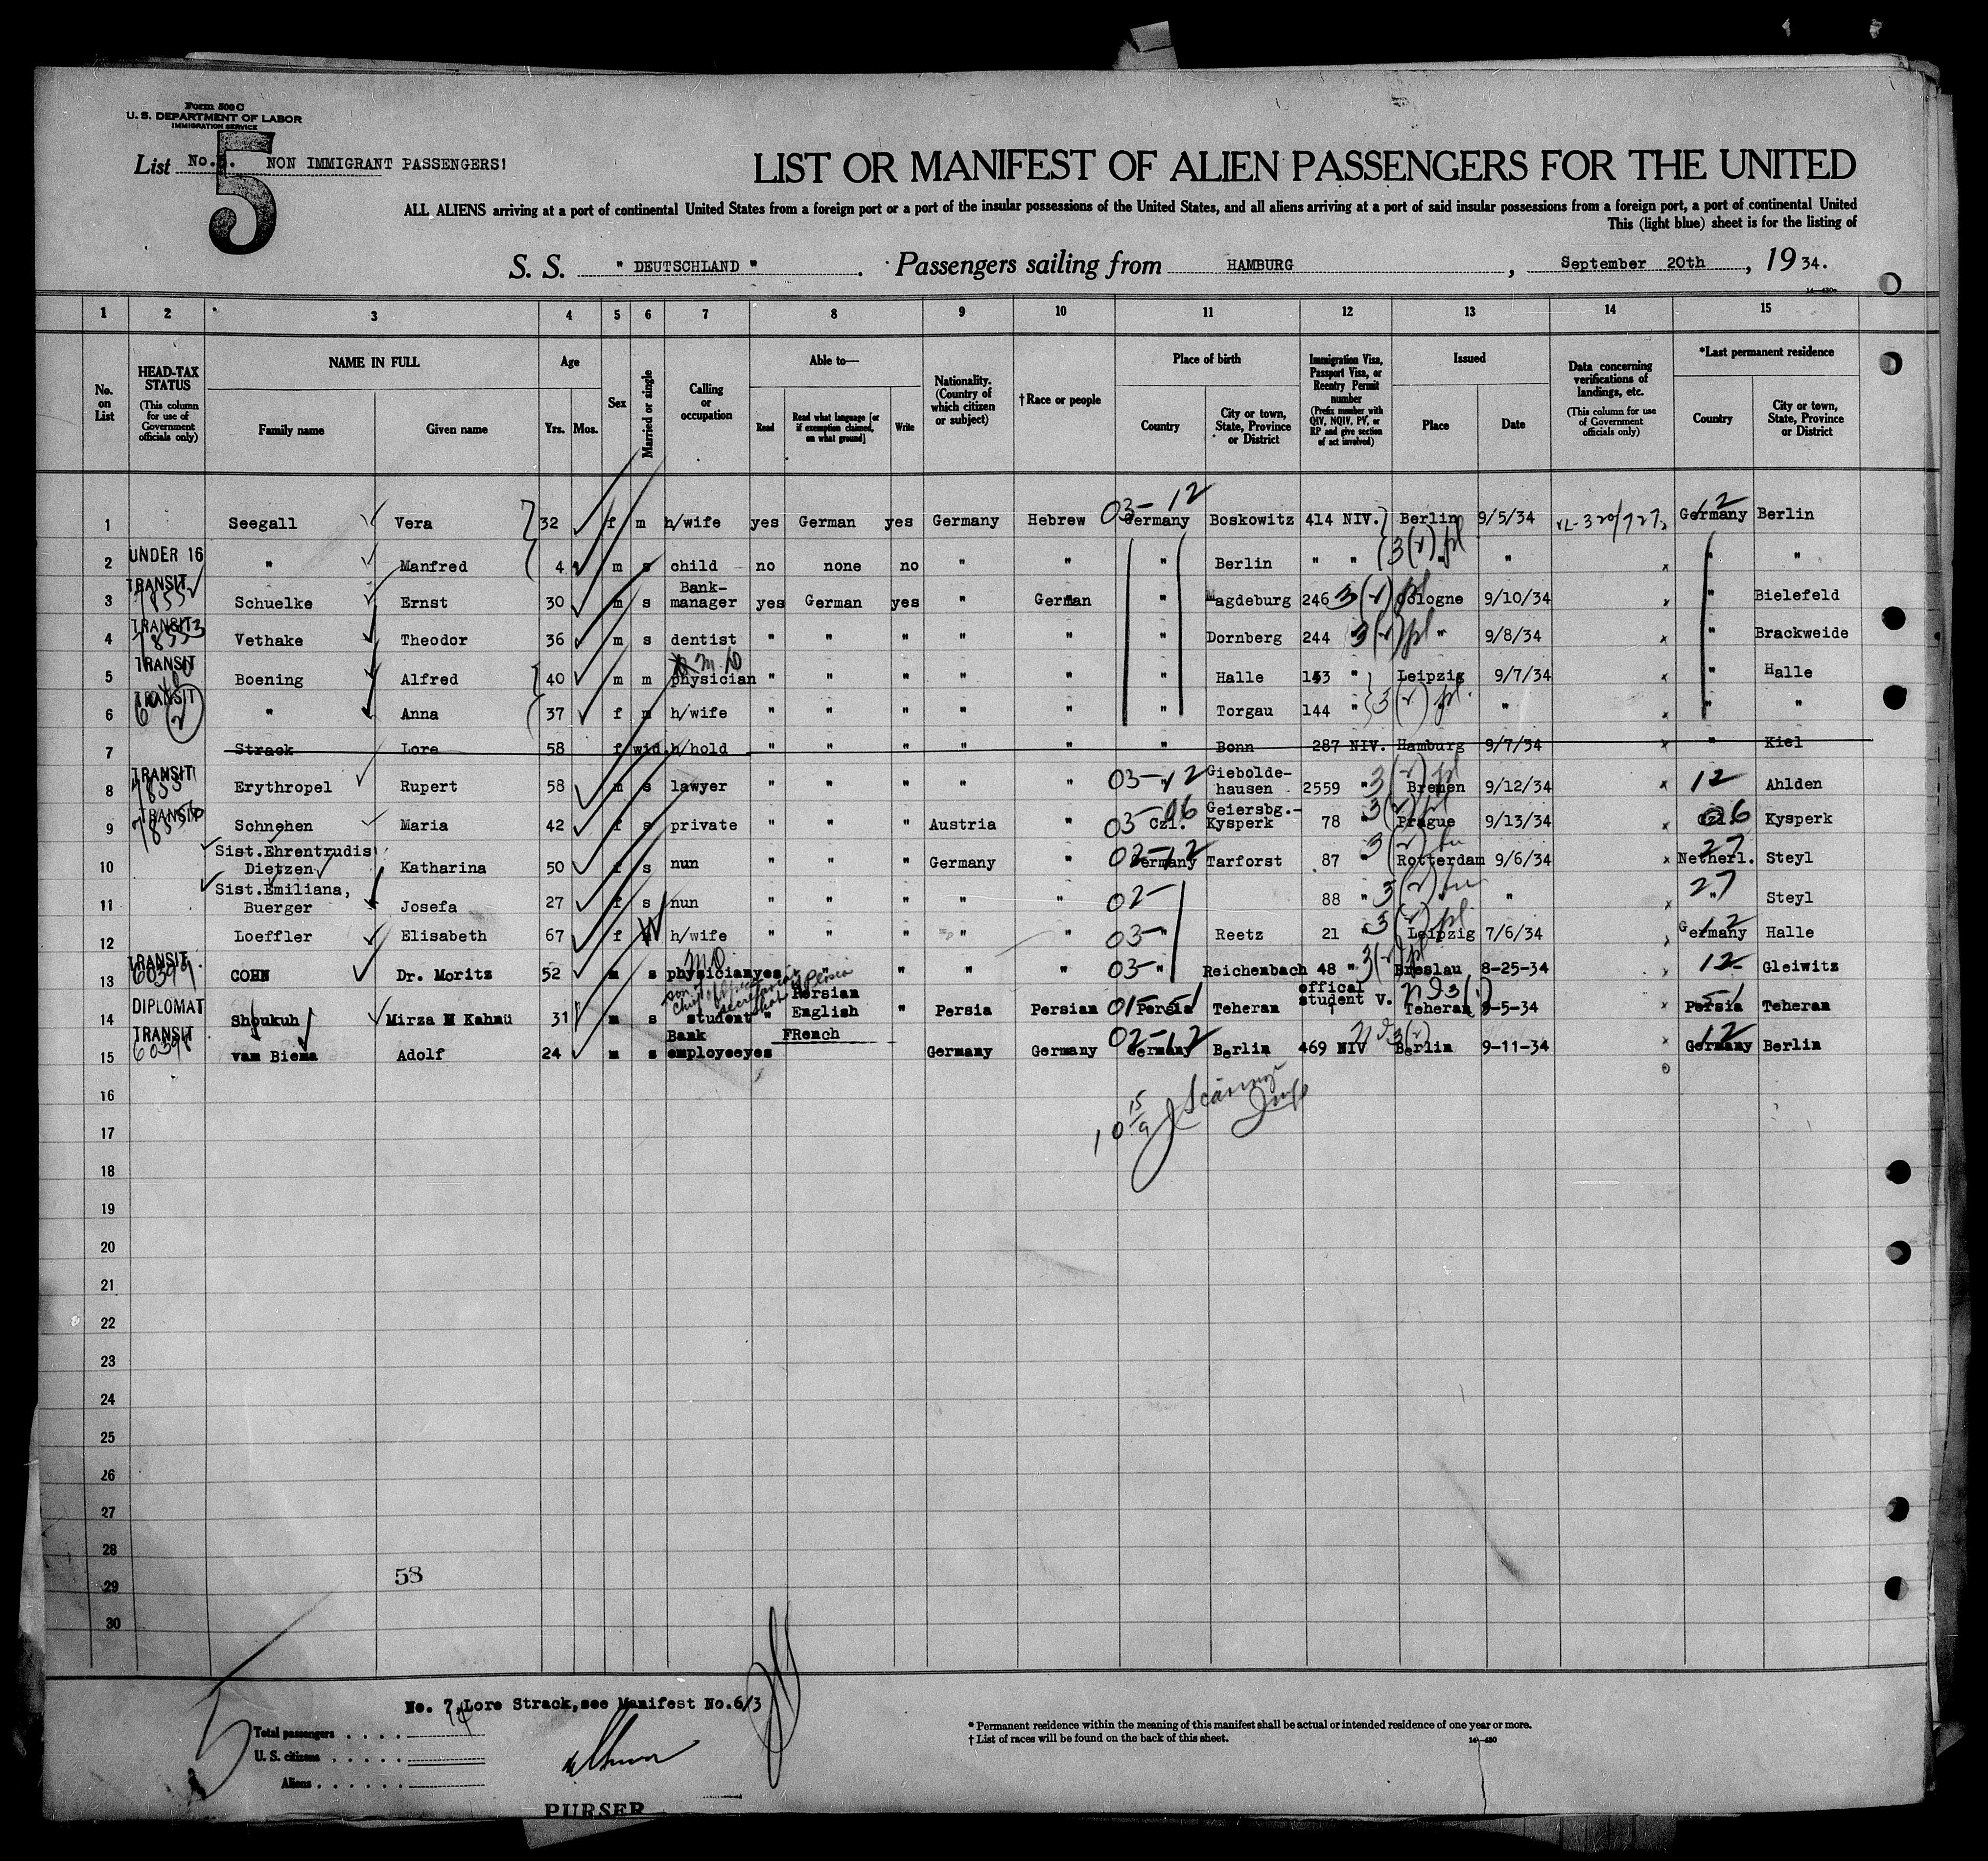 Form 500 C
U. S. DEPARTMENT OF LABOR
IMMIGRATION SERVICE
5
List No. NON IMMIGRANT PASSENGERS!
LIST OR MANIFEST OF ALIEN PASSENGERS FOR THE UNITED
ALL ALIENS arriving at a port of continental United States from a foreign port or a port of the insular possessions of the United States, and all aliens arriving at a port of said insular possessions from a foreign port, a port of continental United
This (light blue) sheet is for the listing of
S. S. " DEUTSCHLAND ". Passengers sailing from HAMBURG, September 20th, 1934.
1 2 3 4 5 6 7 8 9 10 11 12 13 14 15
No. on List
HEAD-TAX STATUS (This column for use of Government officials only)
NAME IN FULL
Family name Given name
Age
Yrs. Mos.
Sex
Married or single
Calling or occupation
Able to—
Read Read what language [or if exemption claimed, on what ground] Write
Nationality. (Country of which citizen or subject)
†Race or people
Place of birth
Country City or town, State, Province or District
Immigration Visa, Passport Visa, or Reentry Permit number (Prefix number with QIV, NQIV, PV, or RP and give section of act involved)
Issued
Place Date
Data concerning verifications of landings, etc. (This column for use of Government officials only)
*Last permanent residence
Country City or town, State, Province or District
03-12 12
1 Seegall Vera 32 f m h/wife yes German yes Germany Hebrew Germany Boskowitz 414 NIV. Berlin 9/5/34 Germany Berlin
UNDER 16 3(2) pl
2 " Manfred 4 m s child no none no " " " Berlin " " " " " "
TRANSIT 78552
3 Schuelke Ernst 30 m s Bank-manager yes German yes " German " Magdeburg 246 3(2) pl Cologne 9/10/34 " Bielefeld
TRANSIT 78553
4 Vethake Theodor 36 m s dentist " " " " " " Dornberg 244 3(2) pl " 9/8/34 " Brackweide
TRANSIT M.D
5 Boening Alfred 40 m m physician " " " " " " Halle 143 " Leipzig 9/7/34 " Halle
TRANSIT (2)
6 " Anna 37 f m h/wife " " " " " " Torgau 144 " 3(2) pl. " " " "
7 Strack Lore 58 f wid. h/hold " " " " " " Bonn 287 NIV. Hamburg 9/7/34 " Kiel
TRANSIT 03-12 3(2) pl 12
8 Erythropel Rupert 58 m s lawyer " " " " " " Giebolde-hausen 2559 " Bremen 9/12/34 Ahlden
TRANSIT 78556 03-06 3(2) pl 06
9 Schnehen Maria 42 f s private " " " Austria " Czl. Geiersbg.-Kysperk 78 Prague 9/13/34 Czl. Kysperk
02-12 3(2) 27
10 Sist.Ehrentrudis Dietzen Katharina 50 f s nun " " " Germany " Germany Tarforst 87 " Rotterdam 9/6/34 Netherl. Steyl
02- 3(2) 27
11 Sist.Emiliana, Buerger Josefa 27 f s nun " " " " " 88 " " " Steyl
03- 3(2) pl. 12
12 Loeffler Elisabeth 67 f W h/wife " " " " " Reetz 21 Leipzig 7/6/34 Germany Halle
TRANSIT 60397 MD 03- 3(2) pl 12
13 COHN Dr. Moritz 52 m s physician yes " " " " " Reichenbach 48 " Breslau 8-25-34 Gleiwitz
DIPLOMAT son of Chief of special secretariat of Shah of Persia
14 Shoukuh Mirza M Kahnü 31 m s student " Persian English French " Persia Persian 01-51 Persia Teheran offical student V. 3(1) Teheran 9-5-34 51 Persia Teheran
TRANSIT 60398 02-12 3(2) 12
15 vam Biema Adolf 24 m s Bank employee yes Germany Germany Germany Berlin 469 NIV Berlin 9-11-34 Germany Berlin
16
17
18
19
20
21
22
23
24
25
26
27
28
58
29
30
5
No. 7, Lore Strack, see Manifest No.6/3
Total passengers 14
U. S. citizens
Aliens
PURSER
* Permanent residence within the meaning of this manifest shall be actual or intended residence of one year or more.
† List of races will be found on the back of this sheet.